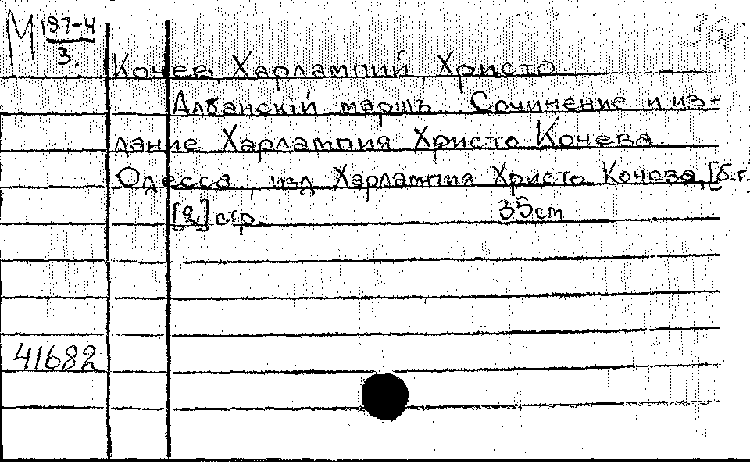 М 197-4
3.
Кочев Харлампий Христо
Албанскій маршъ. Сочинение и из-
дание Харлампия Христо Кочева.
Одесса изд Харлампия Христо Кочева, [б.г.
[2] стр. 35 cm
41682